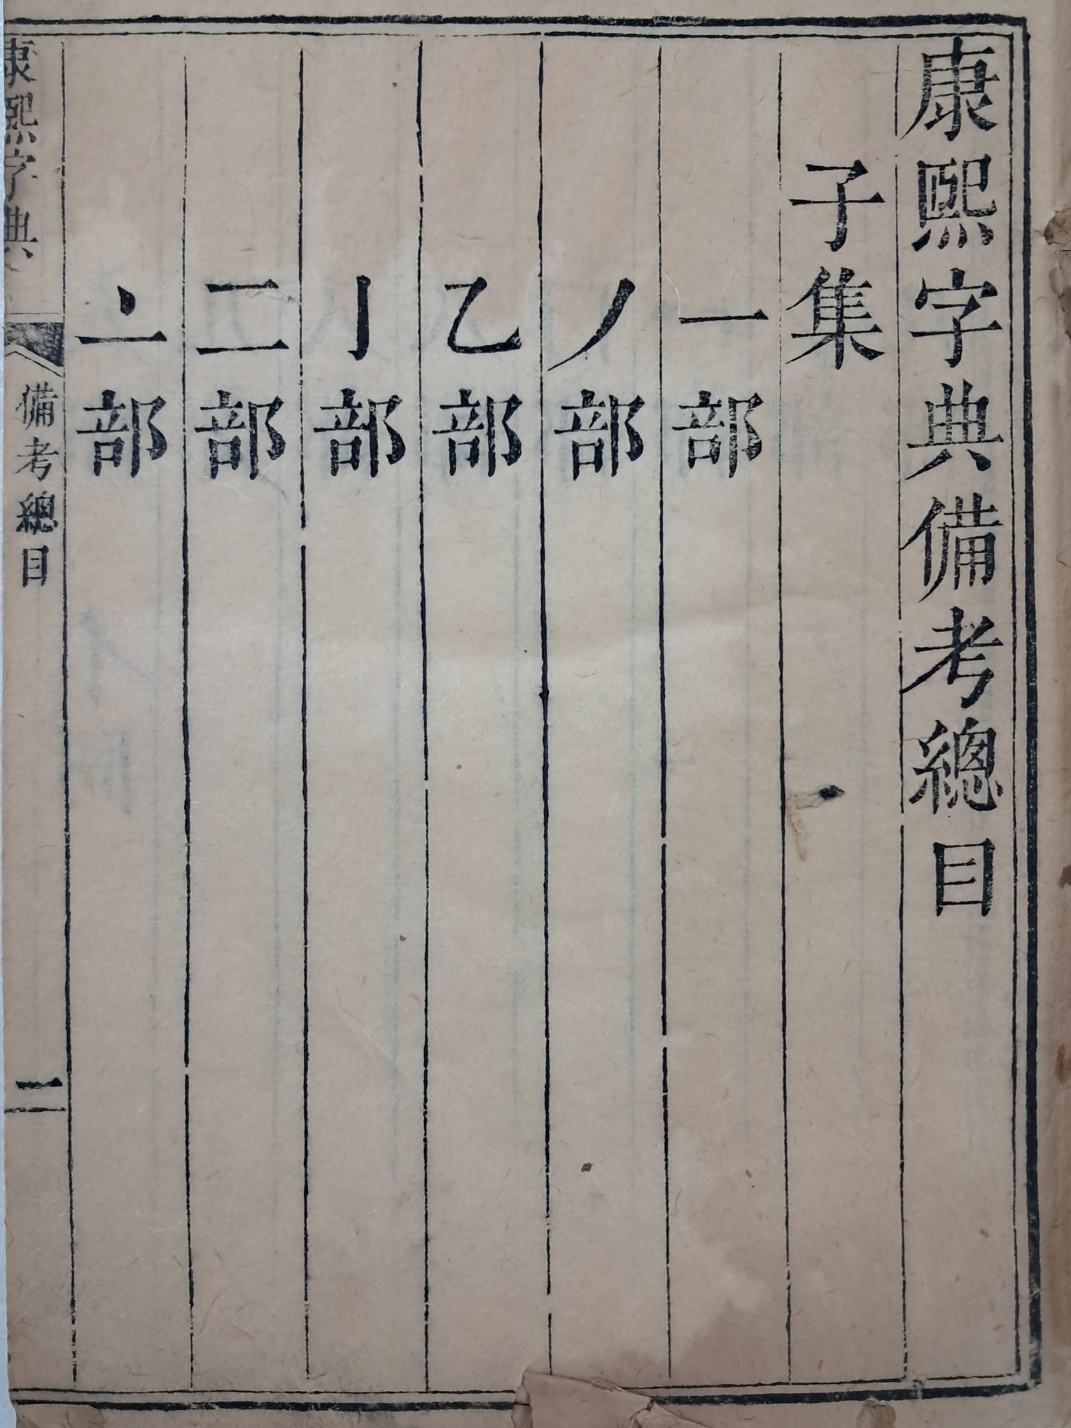 康熙字典備考總目
子集
一部
丿部
乙部
亅部
二部
亠部
康熙字典
備考總目
一